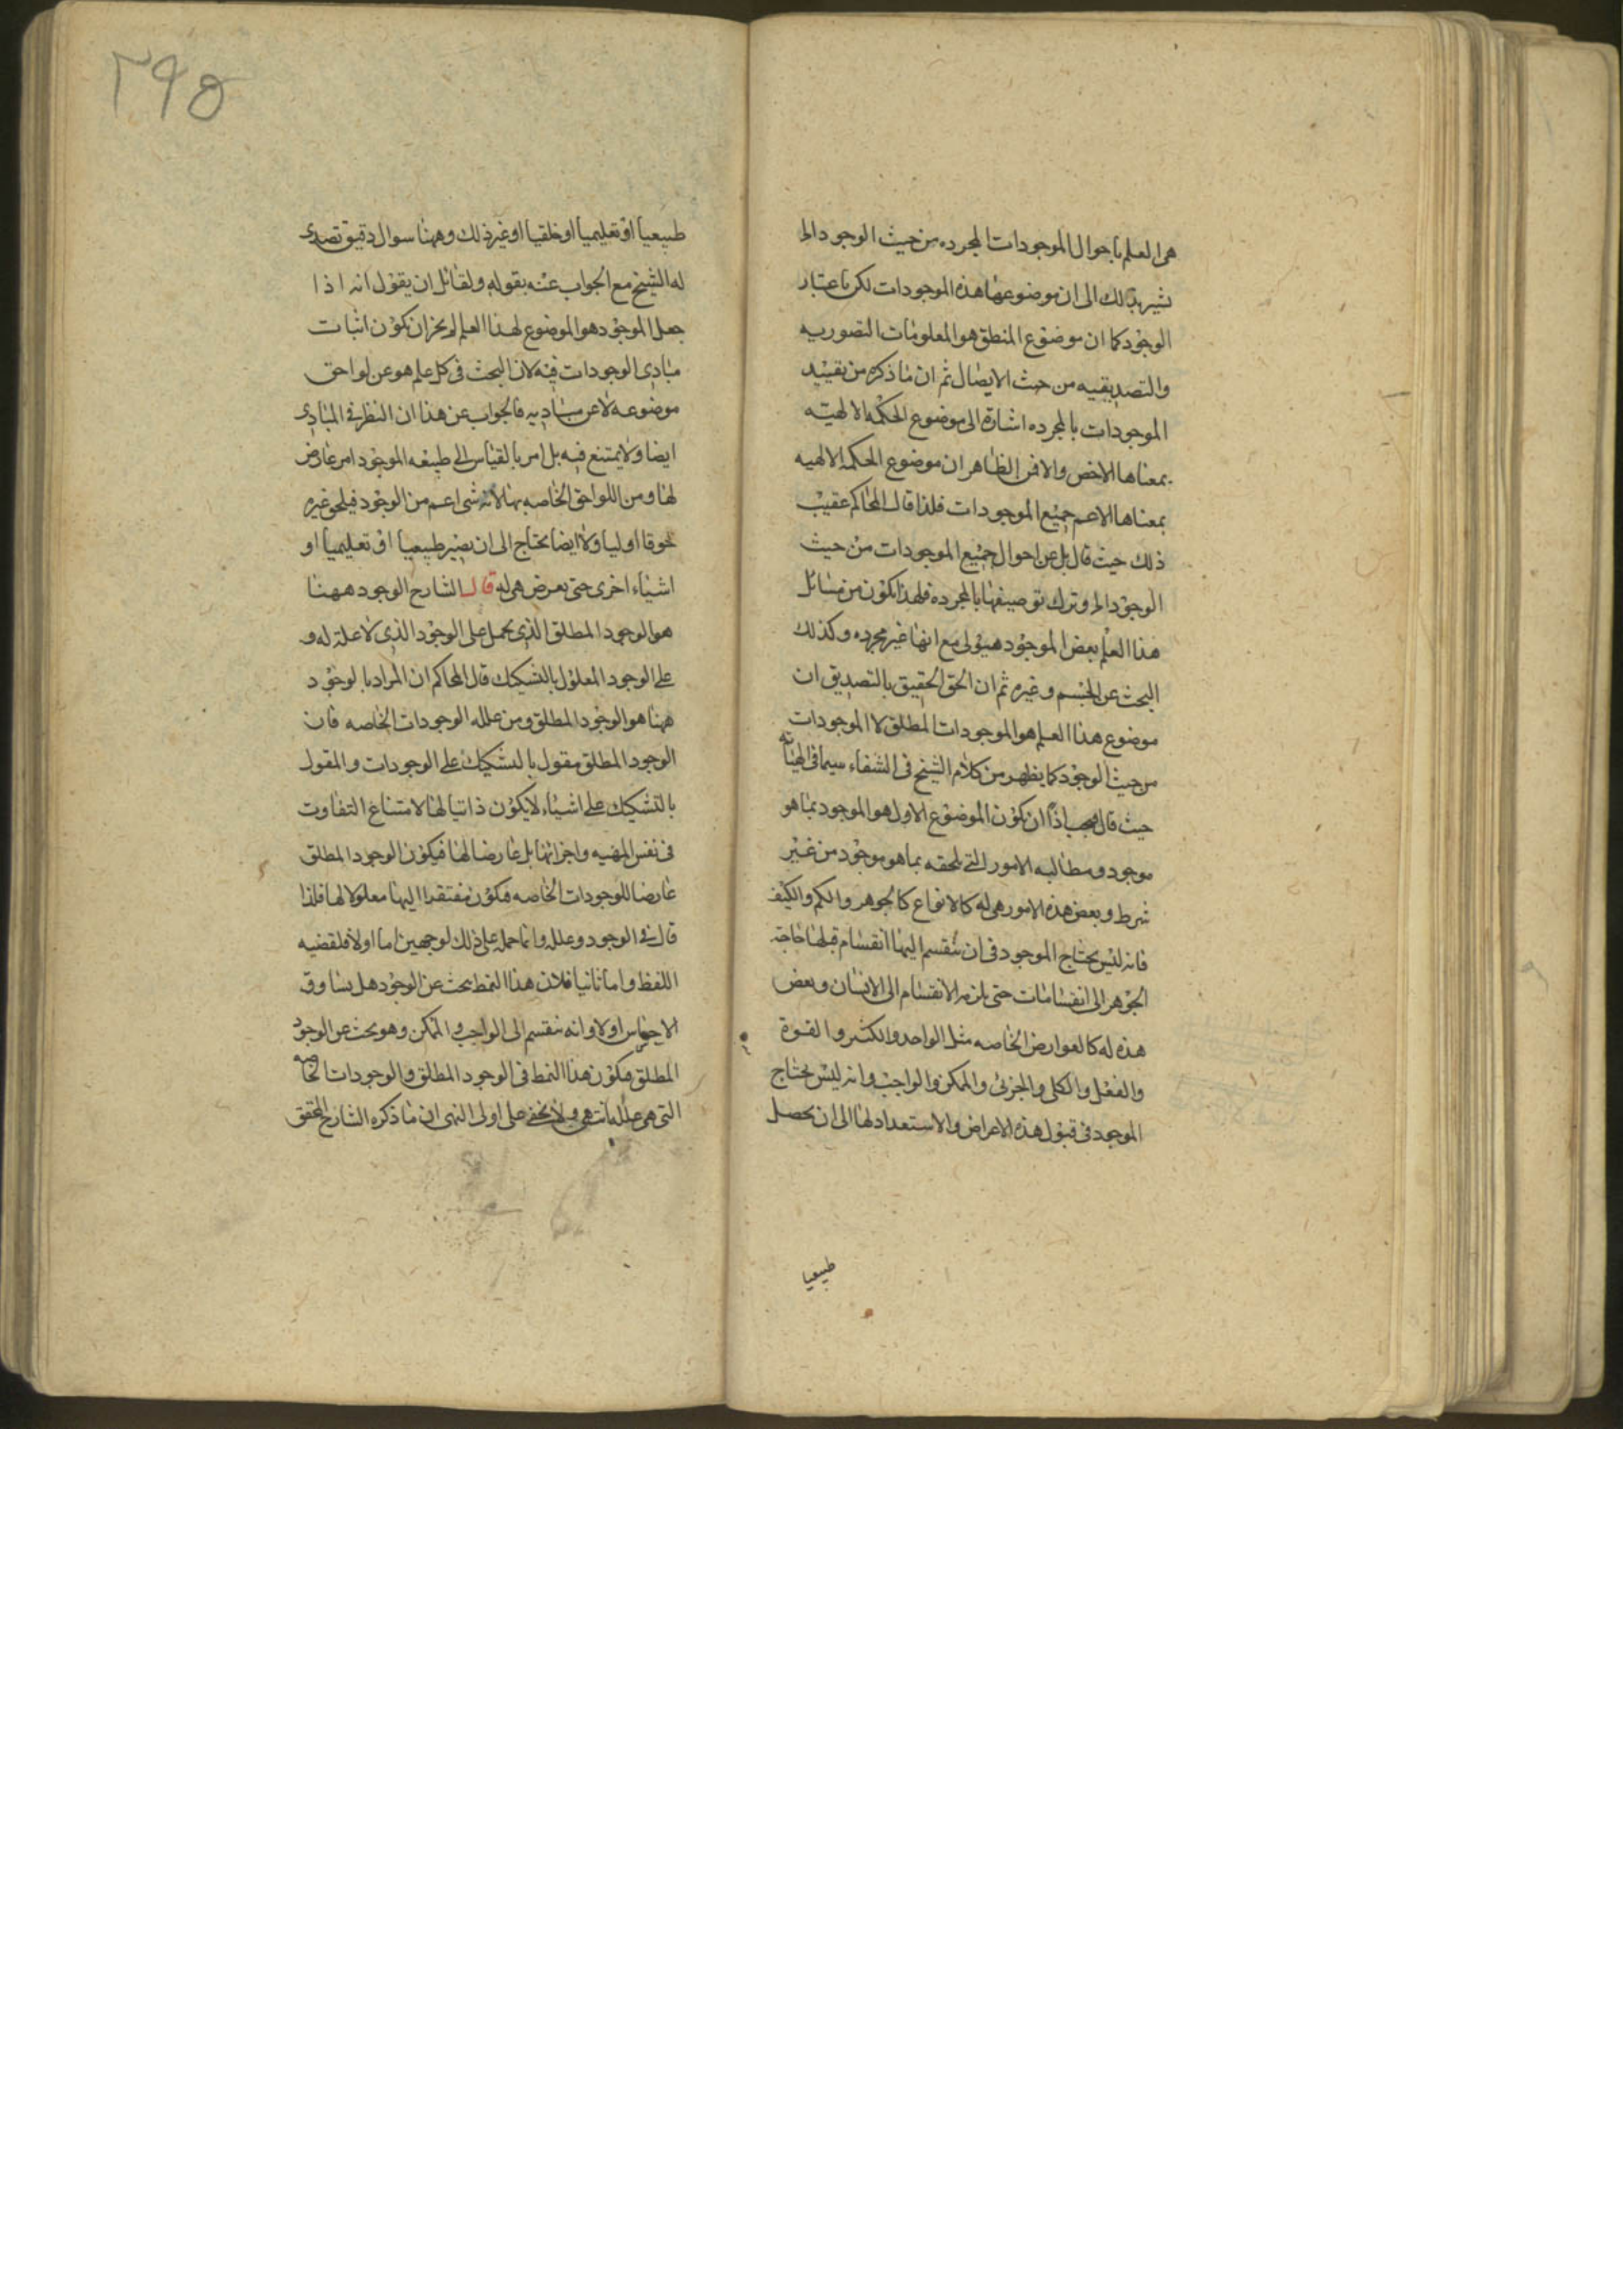 هى العلم باحوال الموجودات المجرده من حيث الوجود الخ
نشير بذلك الى ان موضوعها هذه الموجودات لكن باعتبار
الوجود كما ان موضوع المنطق هو المعلومات التصوريه
والتصديقيه من حيث الايصال ثم ان ما ذكره من تقييد
الموجودات بالمجرده اشارة الى موضوع الحكمه الالهيه
بمعناها الاخص والا فمن الظاهر ان موضوع الحكمه الالهيه
بمعناها الاعم جميع الموجودات فلذا قال المحاكم عقيب
ذلك حيث قال بل عن احوال جميع الموجودات من حيث
الوجود الخ وترك توصيفها بالمجرده فلهذا يكون من مسائل
هذا العلم بعض الموجود هيولى مع انها غير مجرده وكذلك
البحث عن الجسم وغيره ثم ان الحق الحقيق بالتصديق ان
موضوع هذا العلم هو الموجودات المطلق لا الموجودات
من حيث الوجود كما يظهر من كلام الشيخ فى الشفاء سيما فى الهياته
حيث قال فيجب اذاً ان يكون الموضوع الاول هو الموجود بما هو
موجود ومطالبه الامور التى تلحقه بما هو موجود من غير
شرط وبعض هذه الامور هى له كالانواع كالجوهر والكم والكيف
فانه ليس يحتاج الموجود فى ان ينقسم اليها انقسام قبلها حاجة
الجوهر الى انقسامات حتى يلزمه الانقسام الى الانسان وبعض
هذه له كالعوارض الخاصه مثل الواحد والكثير والقوة
والفعل والكلى والجزئى والممكن والواجب وانه ليس يحتاج
الموجود فى قبول هذه الاعراض والاستعداد لها الى ان يحصل
طبيعيا
٣٩٥
طبيعياً او تعليمياً او خلقياً او غير ذلك وههنا سوال دقيق تصدى
له الشيخ مع الجواب عنه بقوله ولقائل ان يقول انه اذا
جعل الموجود هو الموضوع لهذا العلم لم يجز ان يكون اثبات
مبادى الوجودات فيه لان البحث فى كل علم هو عن لواحق
موضوعه لا عن مباديه فالجواب عن هذا ان النظر فى المبادى
ايضا ولا يمتنع فيه بل امر بالقياس الى طبيعه الموجود امر عارض
لها ومن اللواحق الخاصه بها لانه شى اعم من الوجود فيلحق غيره
لحوقا اوليا ولا ايضا يحتاج الى ان يصير طبيعياً او تعليمياً او
اشياء اخرى حتى يعرض هى له قال الشارح الوجود ههنا
هو الوجود المطلق الذى يحمل على الوجود الذى لا علة له و
على الوجود المعلول بالتشكيك قال المحاكم ان المراد بالوجود
ههنا هو الوجود المطلق ومن علله الوجودات الخاصه فان
الوجود المطلق مقول بالتشكيك على الوجودات والمقول
بالتشكيك على اشياء لا يكون ذاتيا لها لامتناع التفاوت
فى نفس المهيه واجزائها بل عارضا لها فيكون الوجود المطلق
عارضا للوجودات الخاصه فيكون مفتقرا اليها معلولا لها فلذا
قال فى الوجود وعلله وانما حمله على ذلك لوجهين اما اولا فلقضيه
اللفظ واما ثانيا فلان هذا النمط بحث عن الوجود هل يساوق
الاحساس اولا وانه ينقسم الى الواجب والممكن وهو بحث عن الوجود
المطلق فيكون هذا النمط فى الوجود المطلق والوجودات الخاصه
التى هى علله انتهى ولا يخفى على اولى النهى ان ما ذكره الشارح المحقق